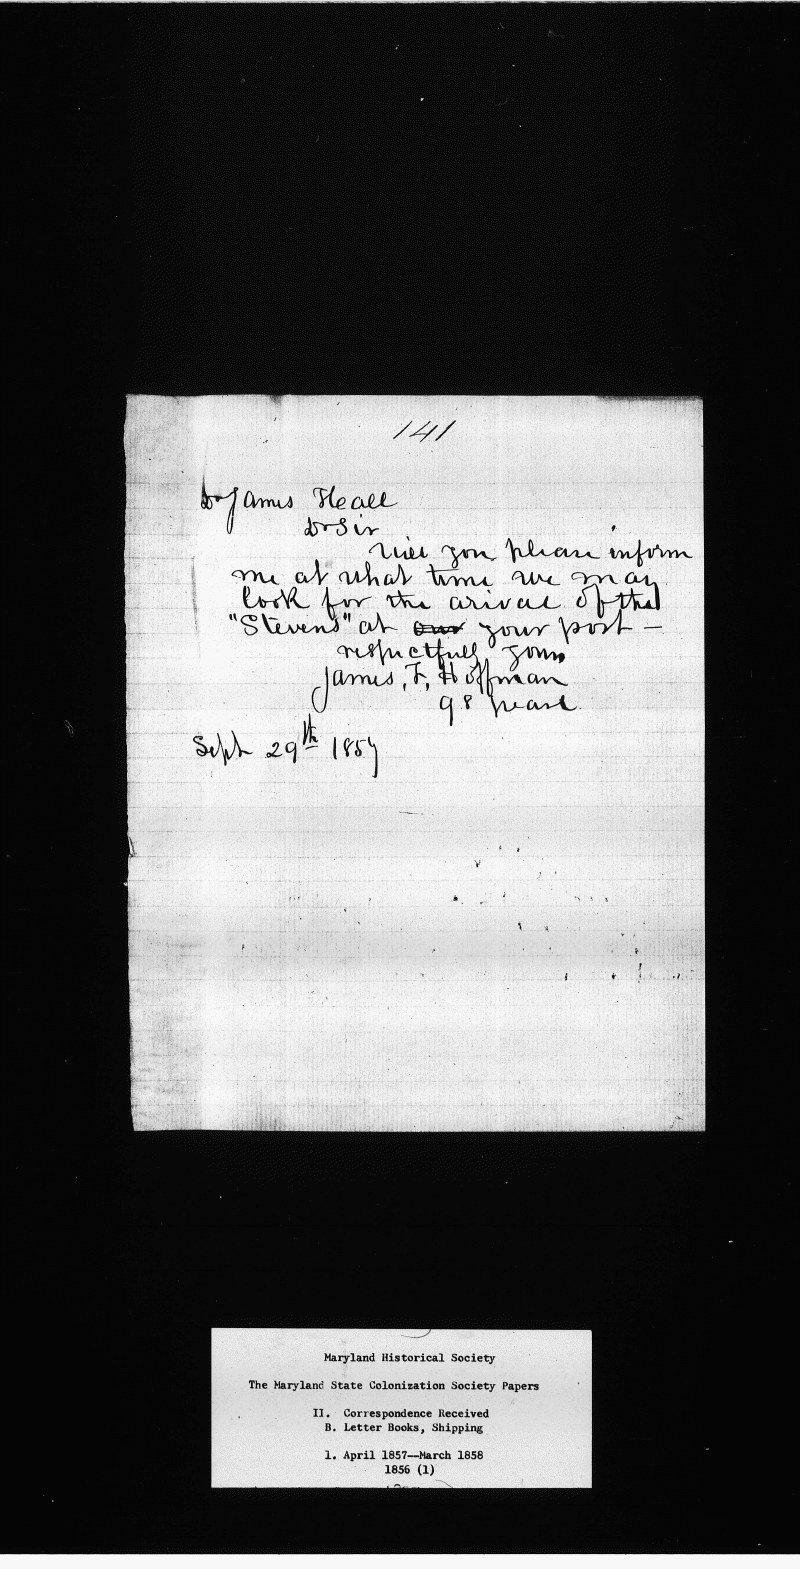 141
Dr James Heall
Dr Sir
Will you please inform
me at what time we may
look for the arival of the
"Stevens" at our your port —
respectfully yours
James, F, Hoffman
98 pearl
Sept 29th 1857
Maryland Historical Society
The Maryland State Colonization Society Papers
II. Correspondence Received
B. Letter Books, Shipping
1. April 1857--March 1858
1856 (1)